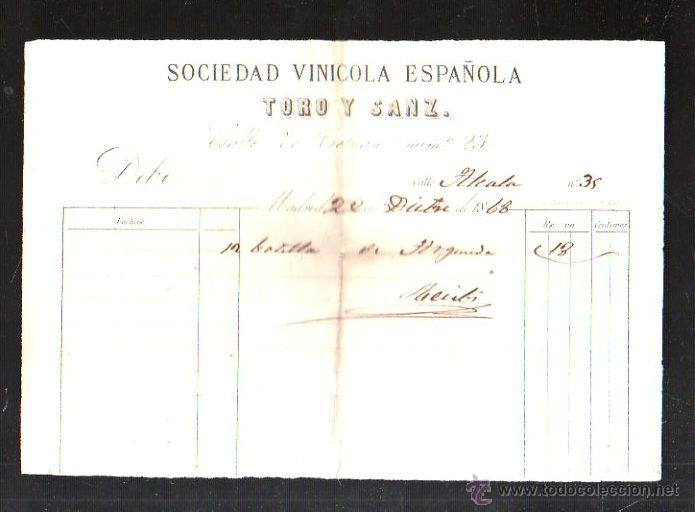 SOCIEDAD VINICOLA ESPAÑOLA
TORO Y SANZ.
Calle de num.º 23
Debe
Calle Alcala nº. 35
Madrid 22 de Dicbre de 1868
Fechas. Rs. vn. Centimos.
12 botella de Arganda 18
Recibi
www.todocoleccion.net